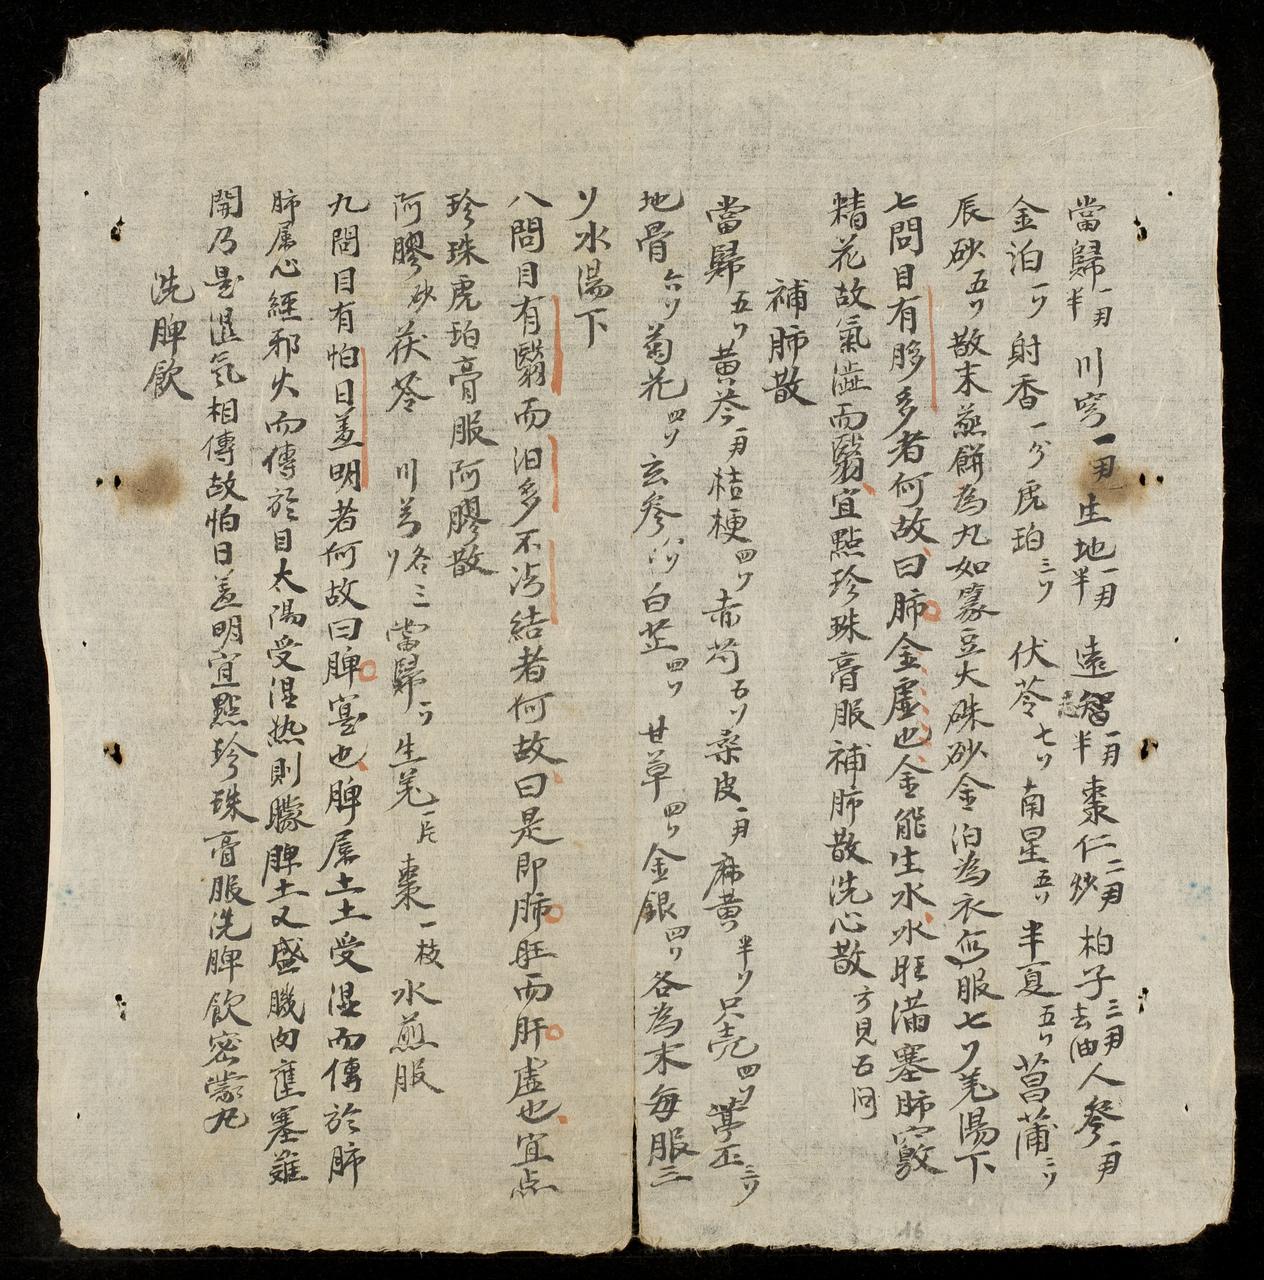 當歸一両半 川芎一両 生地一両半 遠智志一両半 棗仁二両炒 柏子三両去油 人參一両
金泊一リ 射香一分 虎珀三リ 伏苓七リ 南星五リ 半夏五リ 菖蒲三リ
辰砂五リ 散末蒸餅為丸如菉豆大硃砂金泊為衣 服七リ羌湯下
七問目有眵多者何故曰肺金虛也金能生水水旺滿塞肺竅
精花故氣澁而翳宜點珍珠膏服補肺散洗心散方見五问
補肺散
當歸五リ 黃芩一両 桔梗四リ 赤芍五リ 桑皮一両 麻黃半リ 只壳四リ 葶苈三リ
地骨六リ 菊花四リ 玄參八リ 白芷四リ 甘草四リ 金銀四リ 各為末每服三
リ水湯下
八問目有翳而泪多不沽結者何故曰是即肺旺而肝虛也宜点
珍珠虎珀膏服阿膠散
阿膠炒 茯苓 川芎各三リ 當歸二リ 生羌一片 棗一枝 水煎服
九問目有怕日羞明者何故曰脾寔也脾属土土受湿而傳於肺
肺属心經邪火而傳於目太陽受湿热則朦脾土又盛 肉壅塞难
開乃是濕氣相傳故怕日羞明宜點珍珠膏服洗脾飲密蒙丸
洗脾飲
16